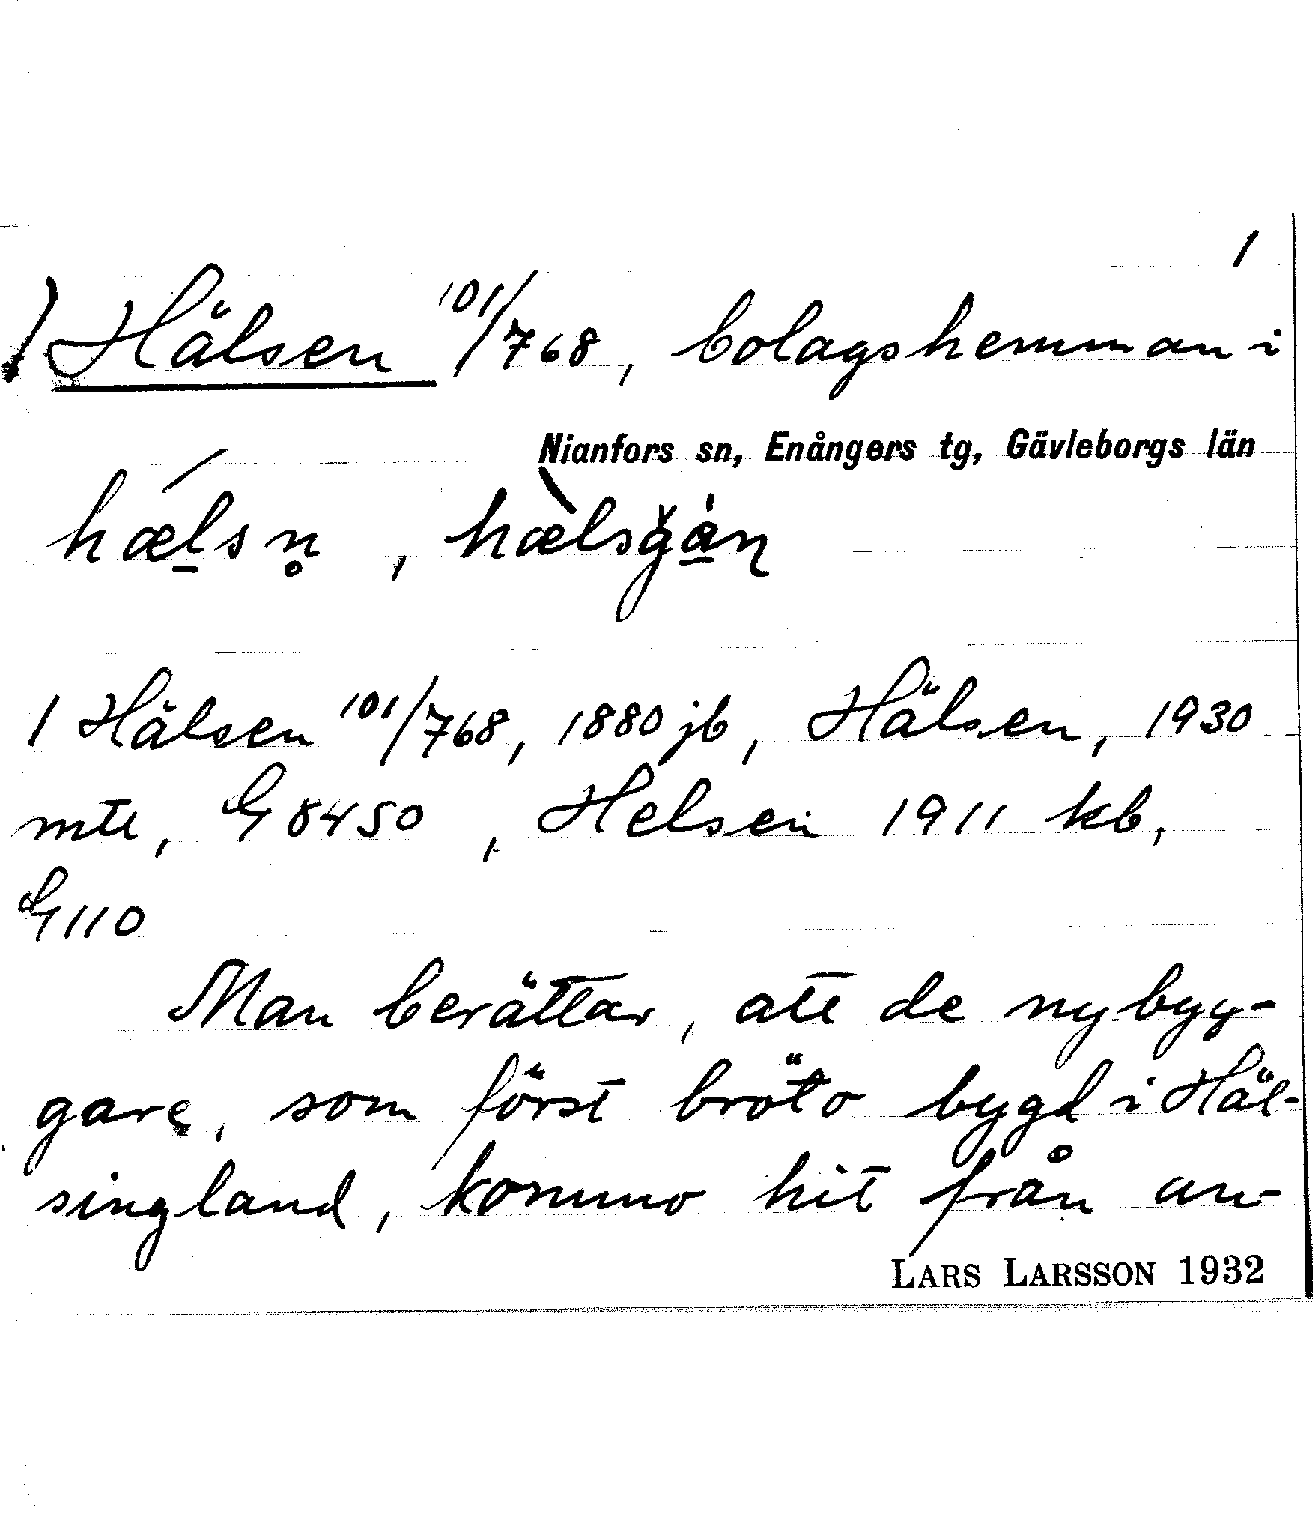 1
Hälsen 101/768, bolagshemman i
Nianfors sn, Enångers tg, Gävleborgs län
hælsn̥, hælsgån
1 Hälsen 101/768, 1880 jb, Hälsen, 1930
mtl, G 8450, Helsen 1911 kb,
G 110
Man berättar, att de nybyg-
gare, som först bröto bygd i Häl-
singland, kommo hit från an-
LARS LARSSON 1932